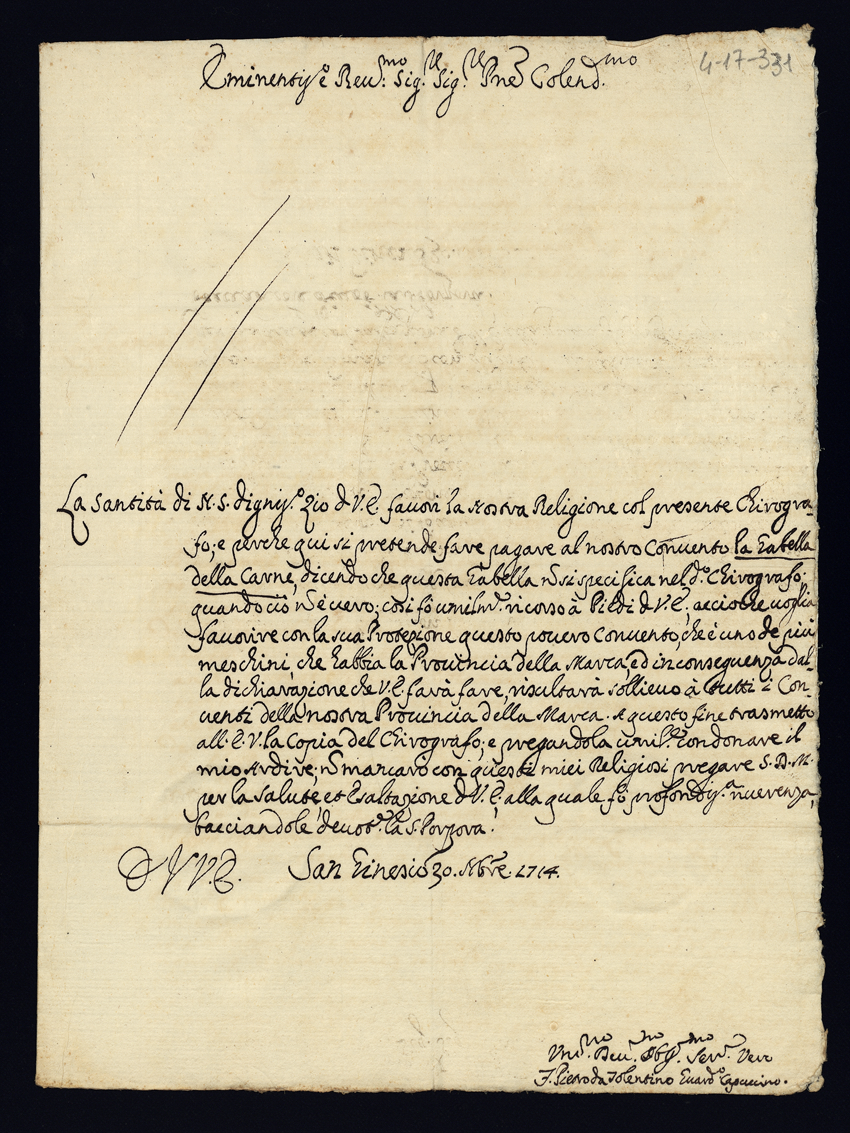 Eminentiss.o e Reu:mo Sig.r Sig.r Pne Colend.mo
4-17-331
La Santità di N. S. digniss.o Zio d V. E. fauorì la Nostra Religione col presente Chirogra-
fo; e perche qui si pretende fare pagare al nostro Conuento la Tabella
della Carne, dicendo che questa Tabella ñ si specifica nel d.o Chirografo;
quando ciò ñ è uero; così fò umilm.e ricorso à Piedi d V. E., acciò che uoglia
fauorire con la sua Protezione questo pouero Conuento, che è uno de più
meschini, che habbia la Prouincia della Marca, ed in conseguenza dal-
la dichiarazione che V. E. farà fare, risultarà sollieuo à tutti i Con-
uenti della nostra Prouincia della Marca. A questo fine trasmetto
all. E. V. la Copia del Chirografo; e pregandola condonare il
mio Ardire; ñ mancarò con questi miei Religiosi pregare S. D. M.
per la salute, et Esaltazione d V. E., alla quale fò profondiss.a riuerenza,
bacciandole deuot.e la S. Porpora.
D V. E. San Ginesio 30. Nbre. 1714.
Vm.mo Deu.mo Obl.mo Ser.re Vero
F. Pietro da Tolentino Guard.o Capuccino.